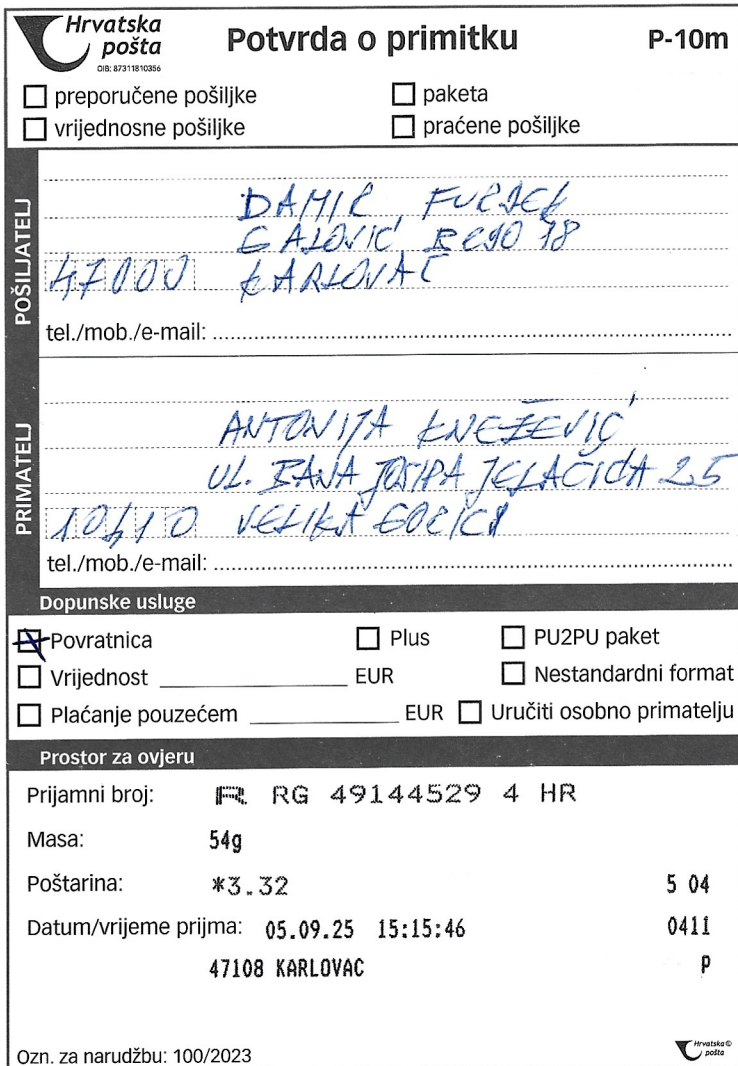 Hrvatska pošta
OIB: 87311810356
Potvrda o primitku
P-10m
preporučene pošiljke
paketa
vrijednosne pošiljke
praćene pošiljke
POŠILJATELJ
DAMIR FURJEK
GALOVIĆ BRDO 18
47000 KARLOVAC
tel./mob./e-mail:
PRIMATELJ
ANTONIJA KNEŽEVIĆ
UL. BANA JOSIPA JELAČIĆA 25
10410 VELIKA GORICA
tel./mob./e-mail:
Dopunske usluge
Povratnica Plus PU2PU paket
Vrijednost EUR Nestandardni format
Plaćanje pouzećem EUR Uručiti osobno primatelju
Prostor za ovjeru
Prijamni broj: R RG 49144529 4 HR
Masa: 54g
Poštarina: *3.32 5 04
Datum/vrijeme prijma: 05.09.25 15:15:46 0411
47108 KARLOVAC P
Ozn. za narudžbu: 100/2023
Hrvatska pošta